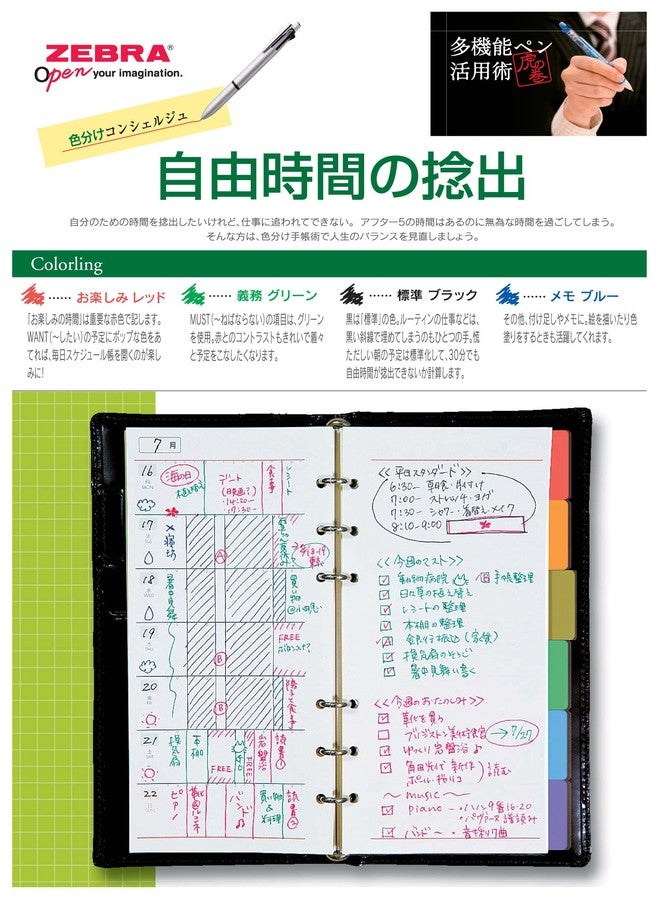 ZEBRA®
Open your imagination.
多機能ペン
活用術
虎の巻
色分けコンシェルジュ
自由時間の捻出
自分のための時間を捻出したいけれど、仕事に追われてできない。アフター5の時間はあるのに無為な時間を過ごしてしまう。
そんな方は、色分け手帳術で人生のバランスを見直しましょう。
Colorling
…… お楽しみ レッド
「お楽しみの時間」は重要な赤色で記します。
WANT(〜したい)の予定にポップな色をあ
てれば、毎日スケジュール帳を開くのが楽し
みに!
…… 義務 グリーン
MUST(〜ねばならない)の項目は、グリーン
を使用。赤とのコントラストもきれいで着々
と予定をこなしたくなります。
…… 標準 ブラック
黒は「標準」の色。ルーティンの仕事などは、
黒い斜線で埋めてしまうのもひとつの手。慌
ただしい朝の予定は標準化して、30分でも
自由時間が捻出できないか計算します。
…… メモ ブルー
その他、付け足しやメモに。絵を描いたり色
塗りをするときも活躍してくれます。
7 月
16
月
MON
海の日
デート
(映画?)
・14:20〜
17:30〜
食事
レシート
17
×寝坊
A
18
暑中見舞
買い物
19
B
FREE
20
B
21
換気扇
本棚
FREE
FREE
岩盤浴
読書①
22
ピアノ
バンド♪
買い物
&
料理
読書②
<<平日スタンダード>>
6:30− 朝食・片付け
7:00− ストレッチ・ヨガ
7:30− シャワー・着替え・メイク
8:10−9:00
<<今週のマスト>>
動物病院
B 手帳整理
日々草の植え替え
レシートの整理
本棚の整理
A 銀行振込(家賃)
換気扇のそうじ
暑中見舞い書く
<<今週のおたのしみ>>
草花を買う
ブリヂストン美術館
→7/27
ゆっくり岩盤浴♪
角田光代 新作
読む
〜music〜
piano − ・ハノン9番16-20
バンド〜 ・音採り1曲